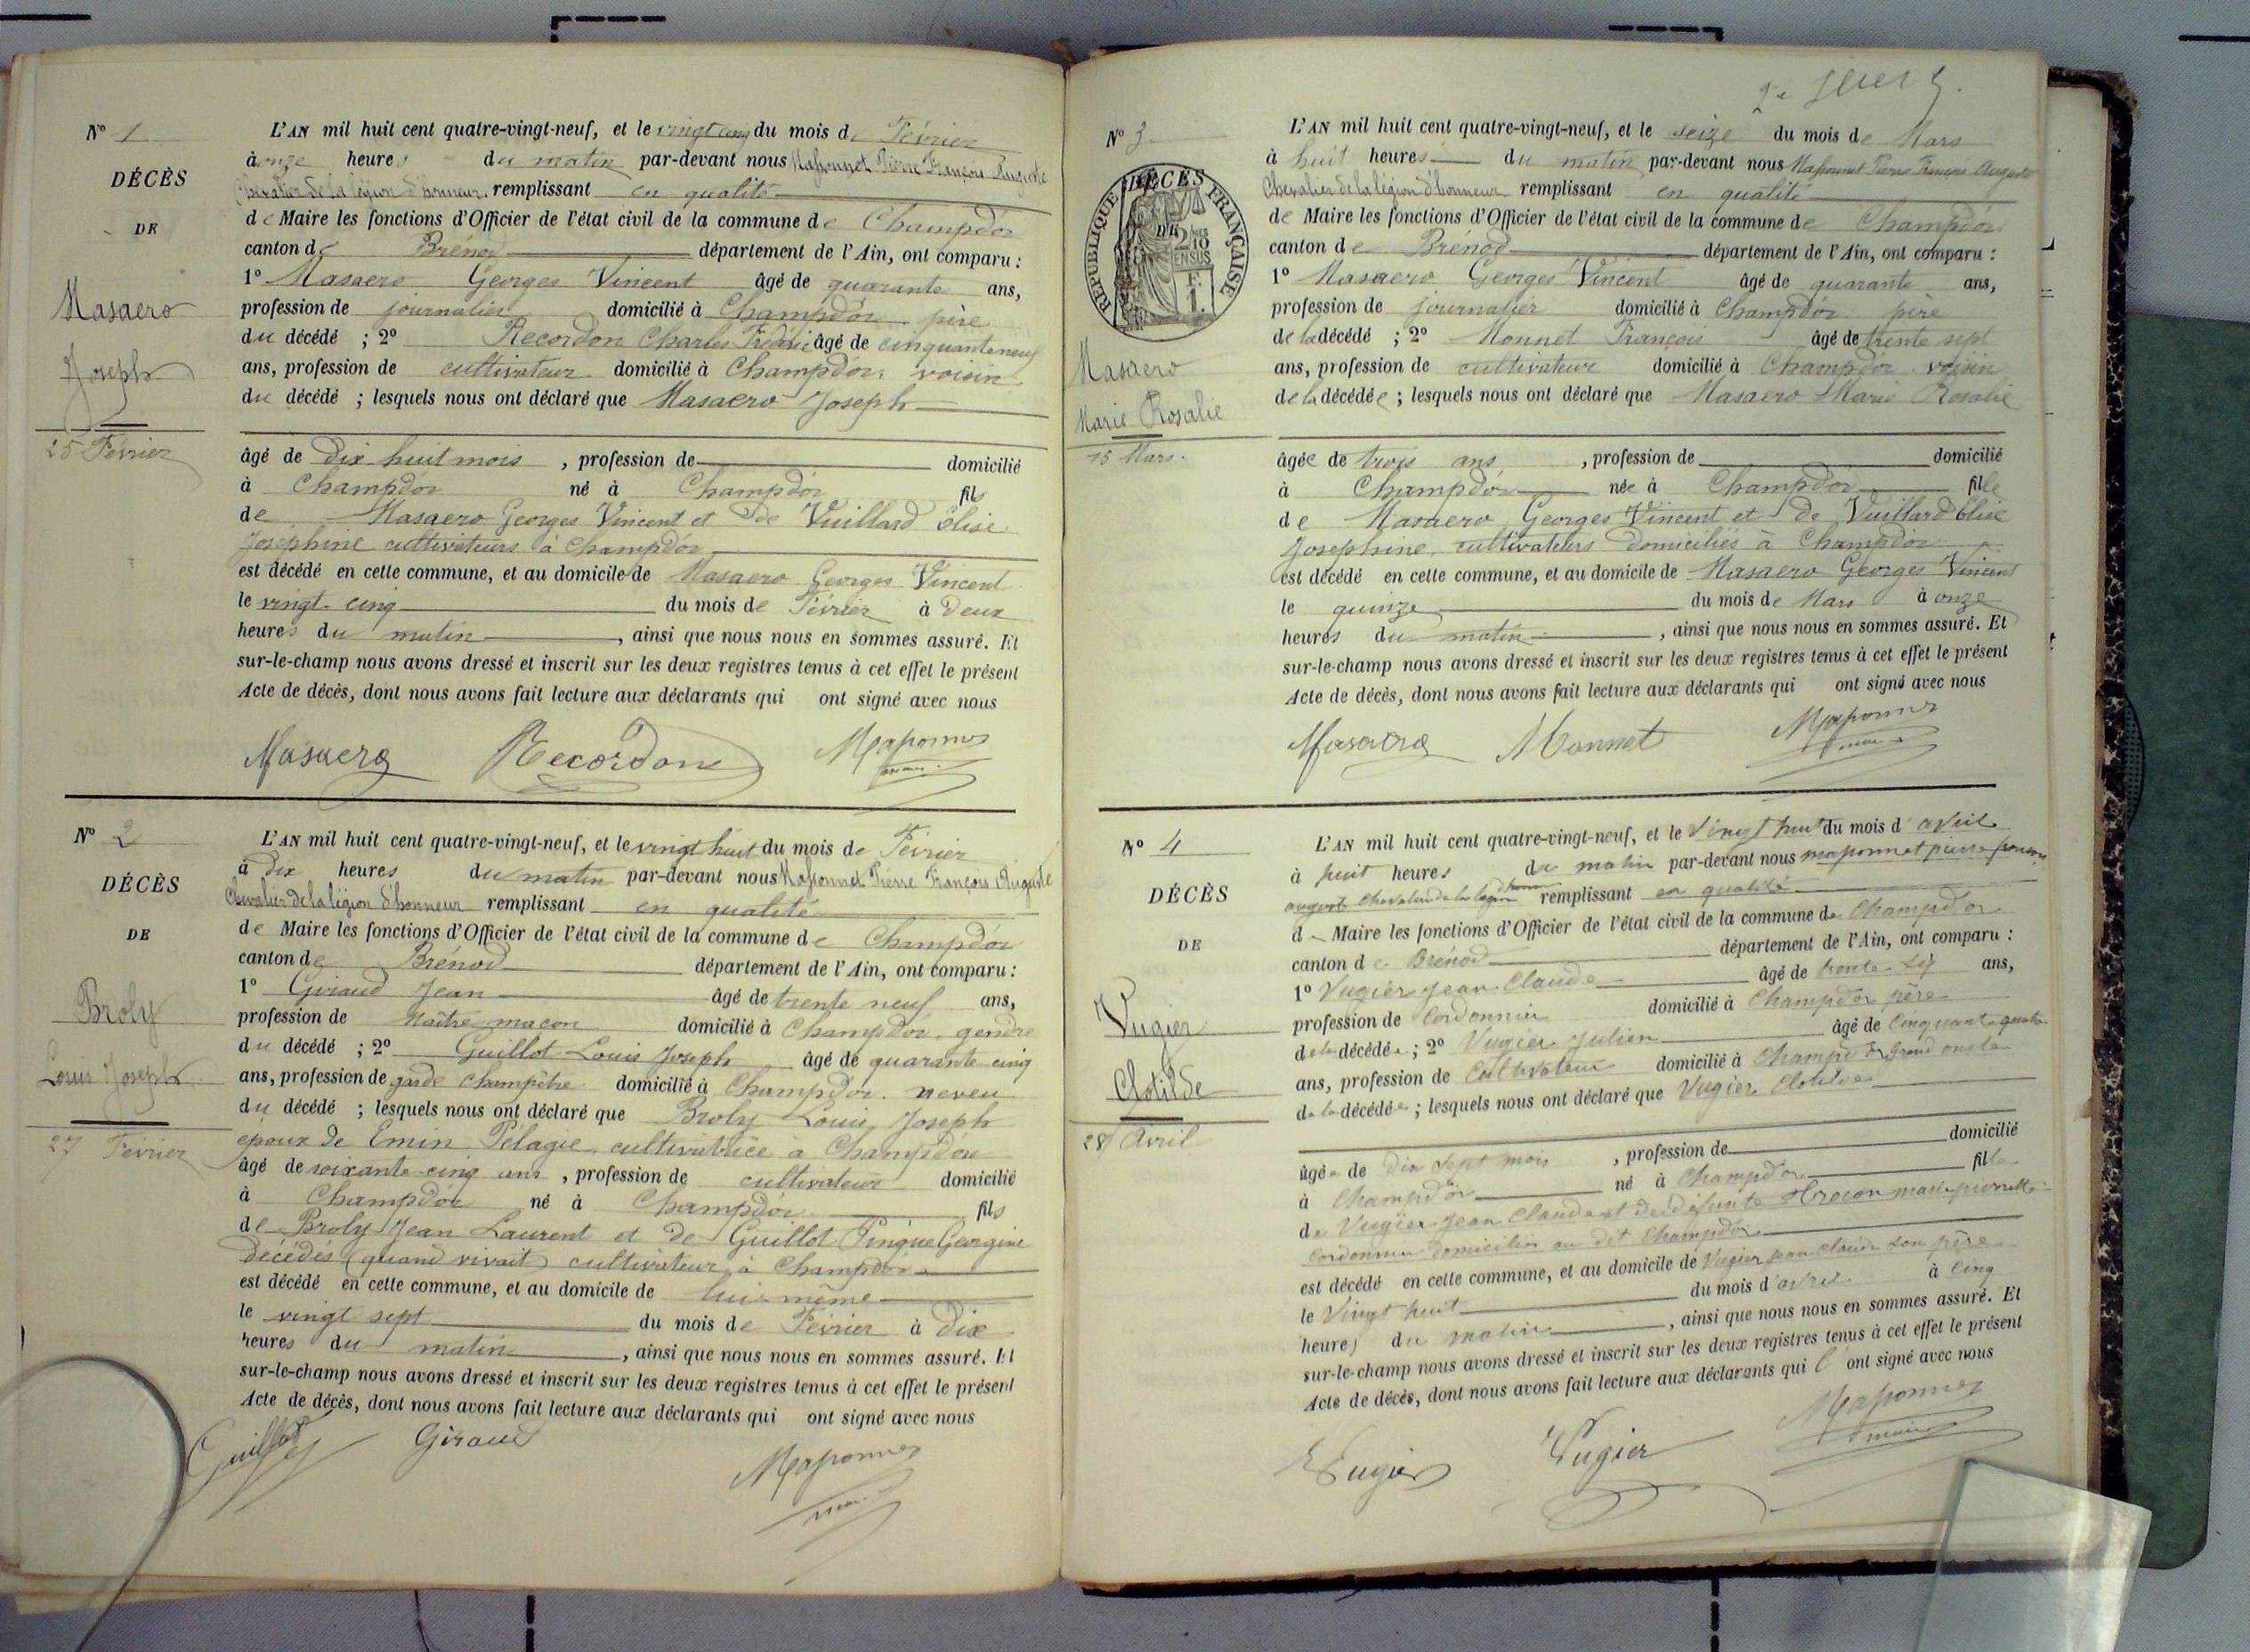 N° 1
DÉCÈS
DE
Masaero
Joseph
25 Février
L'AN mil huit cent quatre-vingt-neuf, et le vingt cinq du mois de Février
à onze heures du matin par-devant nous Massonnet Pierre François Auguste
Chevalier de la légion d'honneur remplissant en qualité
de Maire les fonctions d'Officier de l'état civil de la commune de Champdor
canton de Brénod département de l'Ain, ont comparu :
1° Masaero Georges Vincent âgé de quarante ans,
profession de journalier domicilié à Champdor père
du décédé ; 2° Recordon Charles Frédéric âgé de cinquante neuf
ans, profession de cultivateur domicilié à Champdor voisin
du décédé ; lesquels nous ont déclaré que Masaero Joseph
âgé de Dix huit mois , profession de domicilié
à Champdor né à Champdor fils
de Masaero Georges Vincent et de Vuillard Elise
Joséphine cultivateurs à Champdor
est décédé en cette commune, et au domicile de Masaero Georges Vincent
le vingt-cinq du mois de Février à Deux
heures du matin , ainsi que nous nous en sommes assuré. Et
sur-le-champ nous avons dressé et inscrit sur les deux registres tenus à cet effet le présent
Acte de décès, dont nous avons fait lecture aux déclarants qui ont signé avec nous
Masaero Recordon Massonnet
maire
N° 2
DÉCÈS
DE
Broly
Louis Joseph
27 Février
L'AN mil huit cent quatre-vingt-neuf, et le vingt huit du mois de Février
à Dix heures du matin par-devant nous Massonnet Pierre François Auguste
Chevalier de la légion d'honneur remplissant en qualité
de Maire les fonctions d'Officier de l'état civil de la commune de Champdor
canton de Brénod département de l'Ain, ont comparu :
1° Giraud Jean âgé de trente neuf ans,
profession de Maître maçon domicilié à Champdor gendre
du décédé ; 2° Guillot Louis Joseph âgé de quarante cinq
ans, profession de garde champêtre domicilié à Champdor neveu
du décédé ; lesquels nous ont déclaré que Broly Louis Joseph
époux de Emin Pélagie cultivatrice à Champdor
âgé de soixante cinq ans , profession de cultivateur domicilié
à Champdor né à Champdor fils
de Broly Jean Laurent et de Guillot Pingue Georgine
décédés (quand vivait) cultivateur à Champdor
est décédé en cette commune, et au domicile de lui-même
le vingt sept du mois de Février à Dix
heures du matin , ainsi que nous nous en sommes assuré. Et
sur-le-champ nous avons dressé et inscrit sur les deux registres tenus à cet effet le présent
Acte de décès, dont nous avons fait lecture aux déclarants qui ont signé avec nous
Guillot Giraud Massonnet
maire
N° 3
DÉCÈS
DE
RÉPUBLIQUE FRANÇAISE
Masaero
Marie Rosalie
15 Mars.
L'AN mil huit cent quatre-vingt-neuf, et le seize du mois de Mars
à huit heures du matin par-devant nous Massonnet Pierre François Auguste
Chevalier de la légion d'honneur remplissant en qualité
de Maire les fonctions d'Officier de l'état civil de la commune de Champdor
canton de Brénod département de l'Ain, ont comparu :
1° Masaero Georges Vincent âgé de quarante ans,
profession de journalier domicilié à Champdor père
de la décédé ; 2° Monnet François âgé de trente sept
ans, profession de cultivateur domicilié à Champdor voisin
de la décédée ; lesquels nous ont déclaré que Masaero Marie Rosalie
âgée de trois ans , profession de domicilié
à Champdor née à Champdor fille
de Masaero Georges Vincent et de Vuillard Elise
Josephine cultivateurs domiciliés à Champdor
est décédé en cette commune, et au domicile de Masaero Georges Vincent
le quinze du mois de Mars à onze
heures du matin , ainsi que nous nous en sommes assuré. Et
sur-le-champ nous avons dressé et inscrit sur les deux registres tenus à cet effet le présent
Acte de décès, dont nous avons fait lecture aux déclarants qui ont signé avec nous
Masaero Monnet Massonnet
maire
N° 4
DÉCÈS
DE
Vugier
Clotilde
28 Avril
L'AN mil huit cent quatre-vingt-neuf, et le Vingt huit du mois d'avril
à huit heures du matin par-devant nous massonnet pierre françois
august Chevalier de la légion d'honneur remplissant en qualité
de Maire les fonctions d'Officier de l'état civil de la commune de Champdor
canton de Brénod département de l'Ain, ont comparu :
1° Vugier Jean Claude âgé de trente six ans,
profession de Cordonnier domicilié à Champdor père
de la décédée ; 2° Vugier Julien âgé de Cinquante quatre
ans, profession de Cultivateur domicilié à Champdor grand oncle
de la décédée ; lesquels nous ont déclaré que Vugier Clotilde
âgée de dix sept mois , profession de domicilié
à Champdor né à Champdor fille
de Vugier Jean Claude et de défunte marie pierrette
Cordonnier domicilier au dit Champdor
est décédé en cette commune, et au domicile de Vugier jean Claude son père
le Vingt huit du mois d'avril à Cinq
heures du matin , ainsi que nous nous en sommes assuré. Et
sur-le-champ nous avons dressé et inscrit sur les deux registres tenus à cet effet le présent
Acte de décès, dont nous avons fait lecture aux déclarants qui ont signé avec nous
Vugier Vugier Massonnet
maire